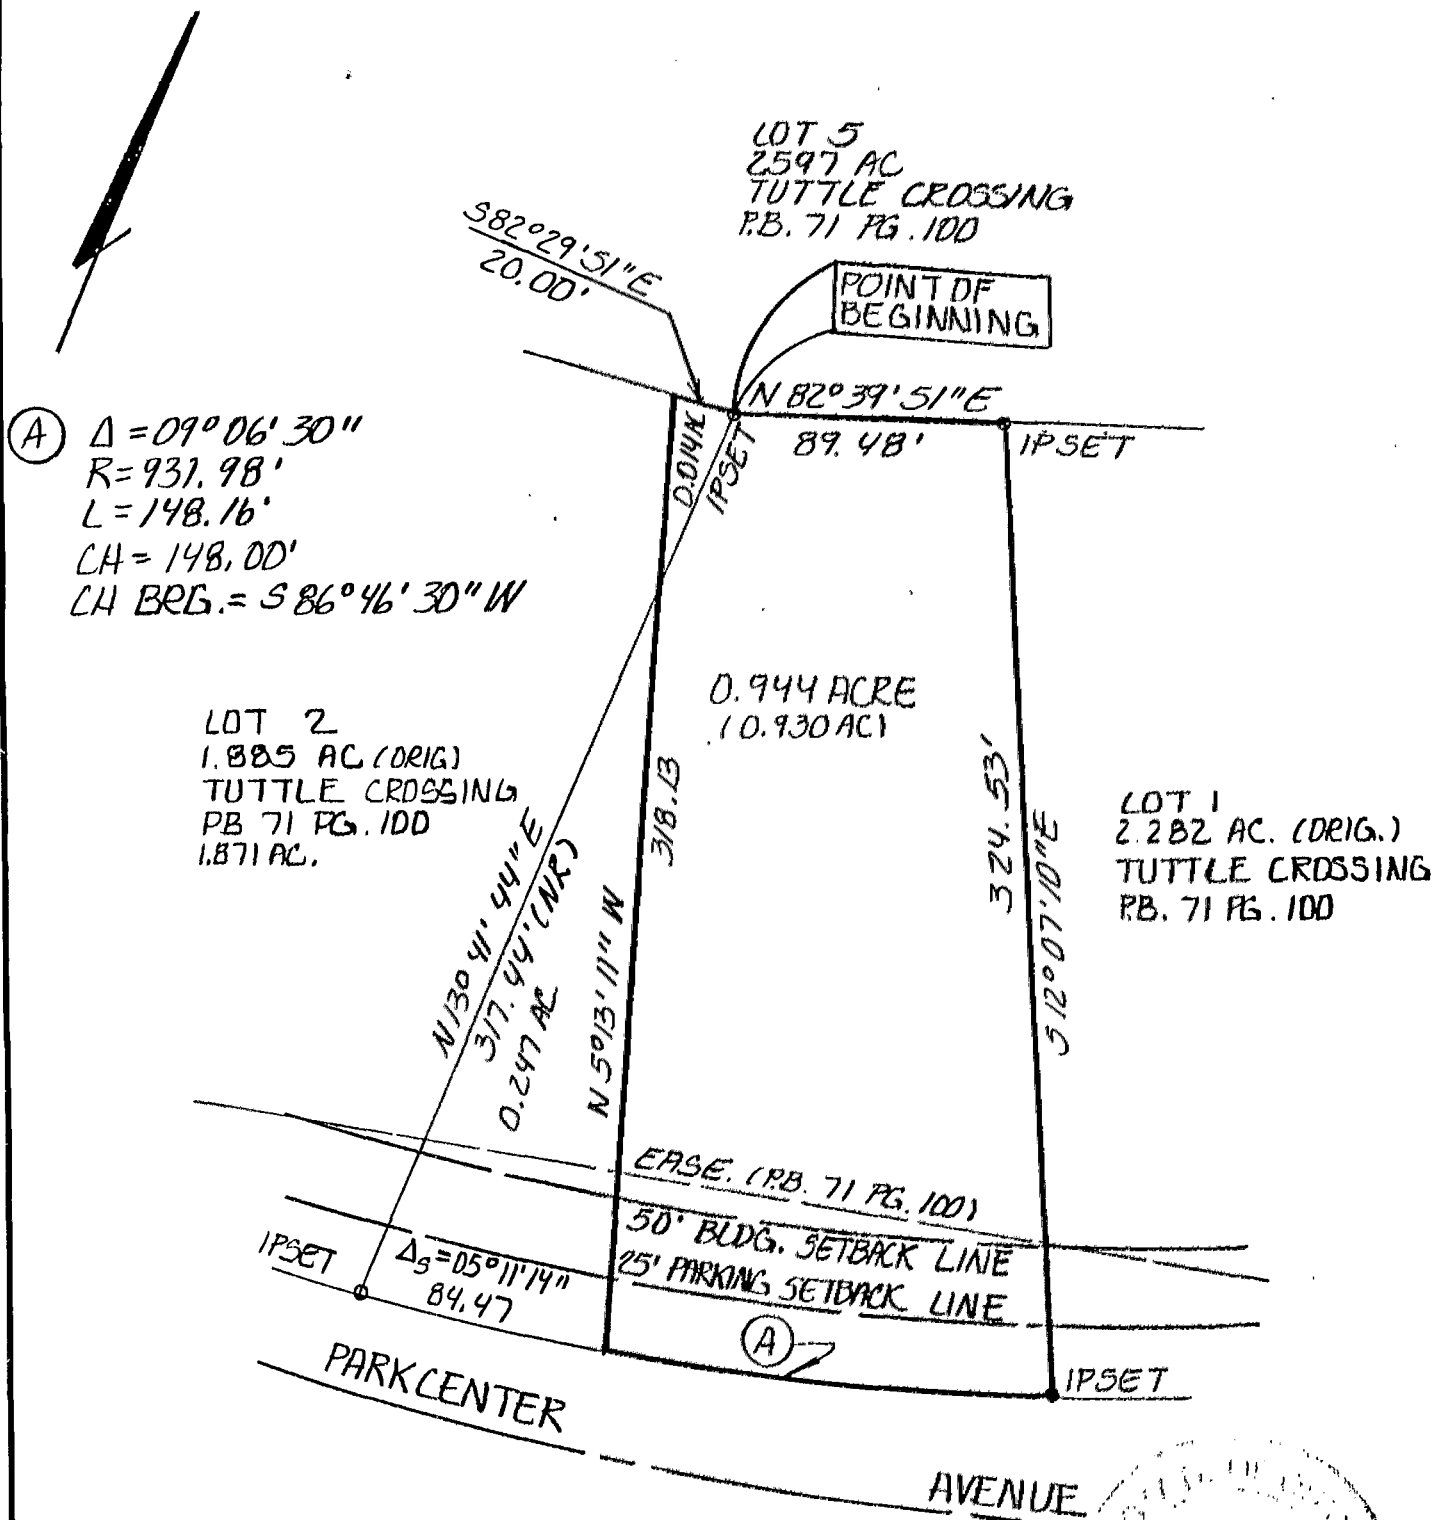 LOT 5
2597 AC
TUTTLE CROSSING
P.B. 71 PG. 100
S82°29'51"E
20.00'
POINT OF
BEGINNING
N 82°39'51"E
89.48'
IPSET
0.014AC
IPSET
A
Δ = 09°06'30"
R = 931.98'
L = 148.16'
CH = 148.00'
CH BRG. = S 86°46'30" W
0.944 ACRE
(0.930 AC)
LOT 2
1.885 AC (ORIG)
TUTTLE CROSSING
PB 71 PG. 100
1.871 AC.
318.13
N 5°13'11" W
324.53'
S 12°07'10"E
LOT 1
2.282 AC. (ORIG.)
TUTTLE CROSSING
P.B. 71 PG. 100
N 13° 41' 44" E
317.44' (NR)
0.247 AC
EASE. (P.B. 71 PG. 100)
50' BLDG. SETBACK LINE
25' PARKING SETBACK LINE
IPSET
Δs = 05°11'14"
84.47
A
IPSET
PARKCENTER
AVENUE